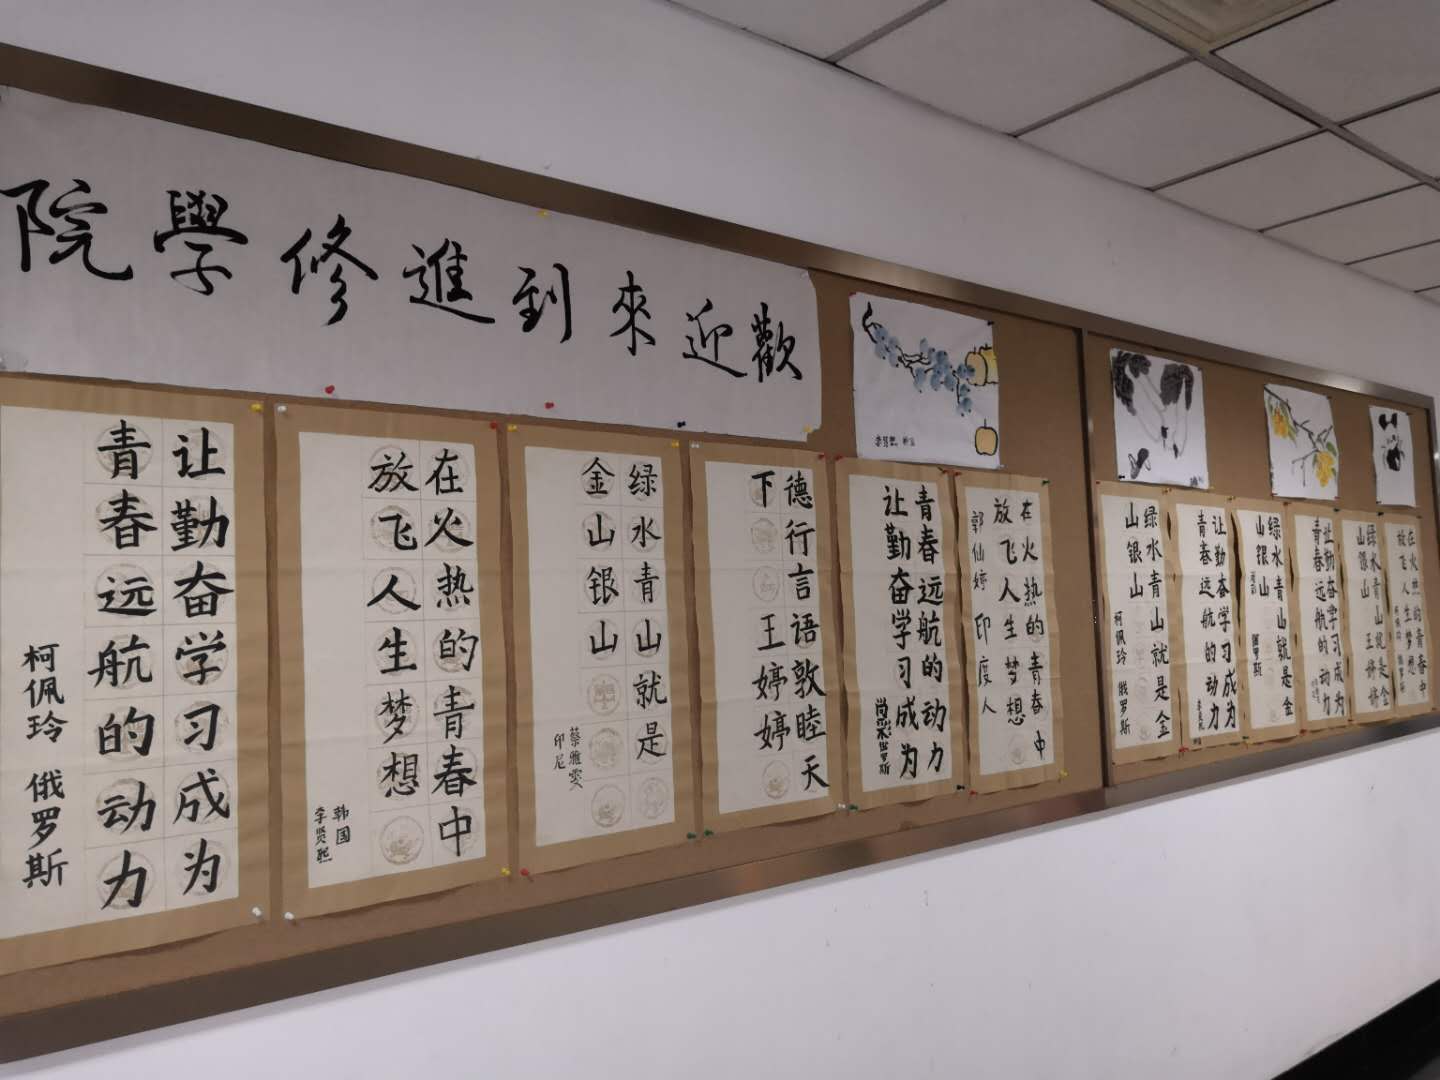 歡迎來到進修學院
让勤奋学习成为
青春远航的动力
柯佩玲 俄罗斯
在火热的青春中
放飞人生梦想
韩国
李贤熙
绿水青山就是
金山银山
蔡雅雯
印尼
德行言语敦睦天
下 王婷婷
青春远航的动力
让勤奋学习成为
俄罗斯
在火热的青春中
放飞人生梦想
郭仙婷 印度人
绿水青山就是金
山银山
柯佩玲 俄罗斯
让勤奋学习成为
青春远航的动力
绿水青山就是金
山银山
俄罗斯
让勤奋学习成为
青春远航的动力
绿水青山就是金
山银山 王婷婷
在火热的青春中
放飞人生梦想